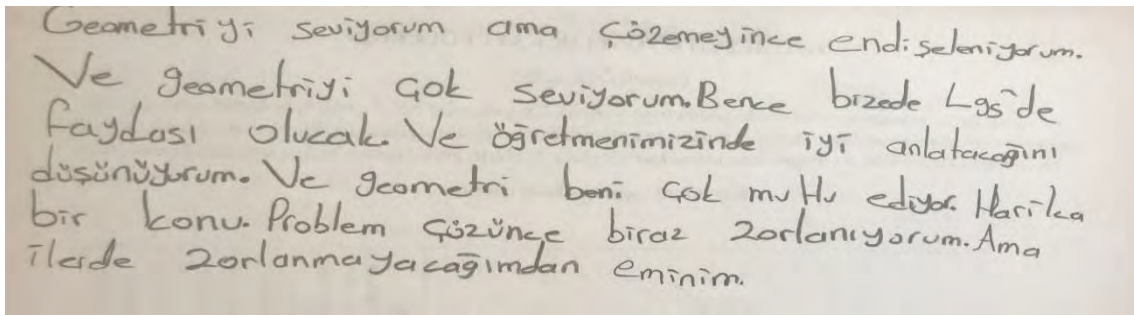 Geometriyi seviyorum ama çözemeyince endişeleniyorum.
Ve geometriyi çok seviyorum. Bence bizede Lgs'de
faydası olucak. Ve öğretmenimizinde iyi anlatacağını
düşünüyorum. Ve geometri beni çok mutlu ediyor. Harika
bir konu. Problem çözünce biraz zorlanıyorum. Ama
ilerde zorlanmayacağımdan eminim.